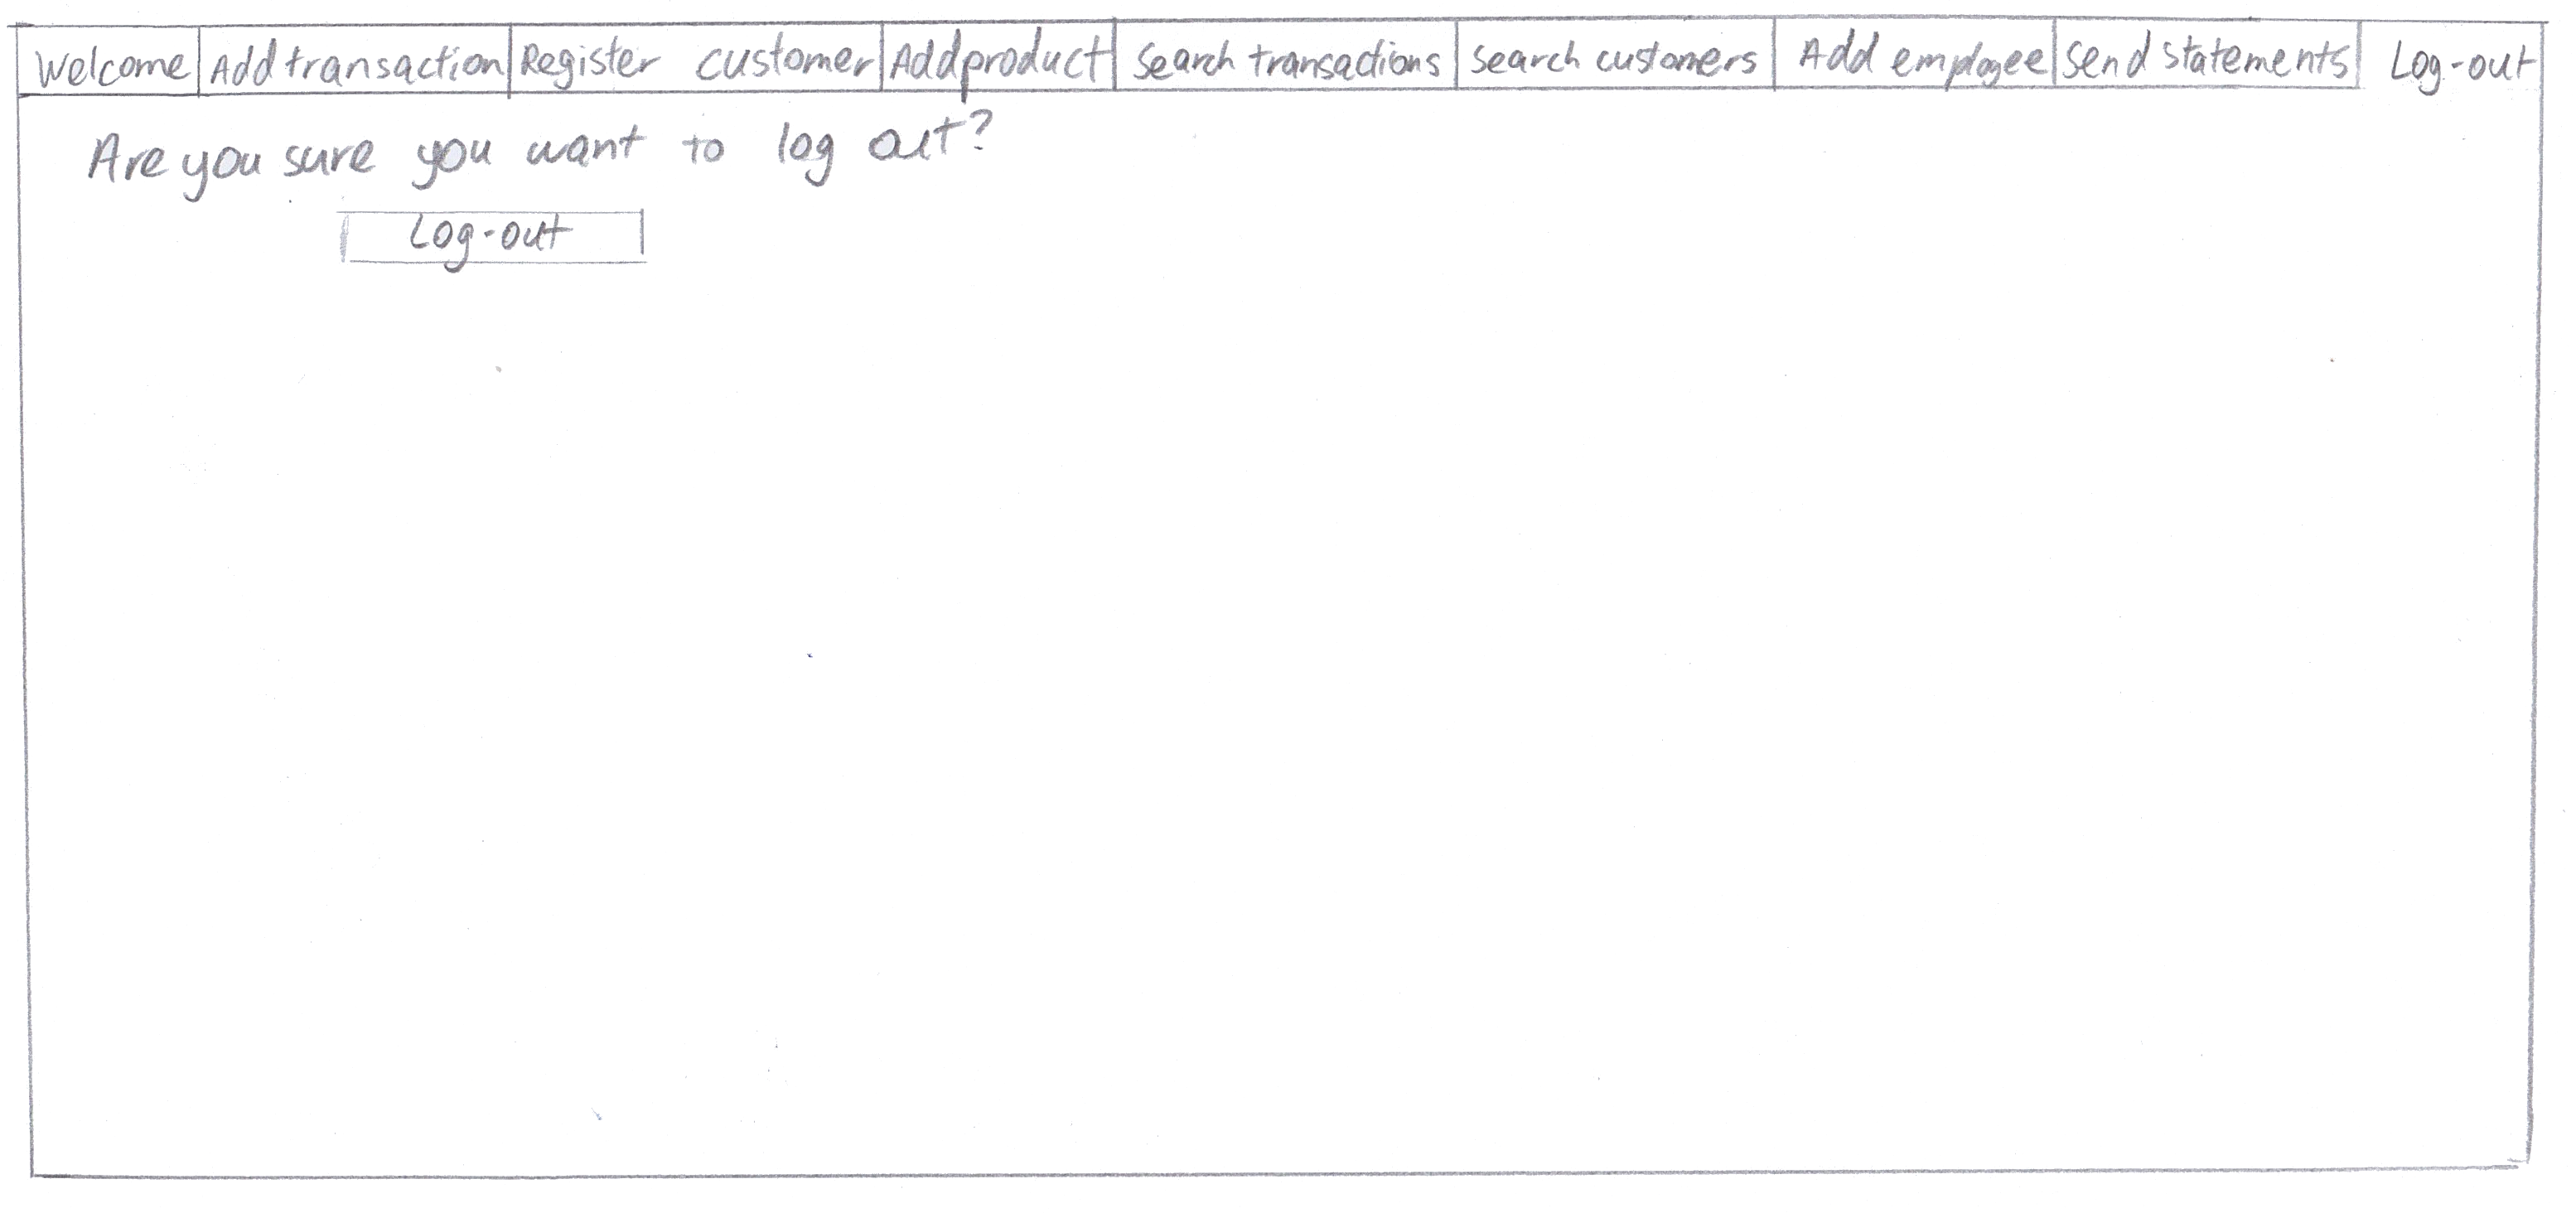 Welcome Add transaction Register customer Add product Search transactions Search customers Add employee Send statements Log-out
Are you sure you want to log out?
Log-out